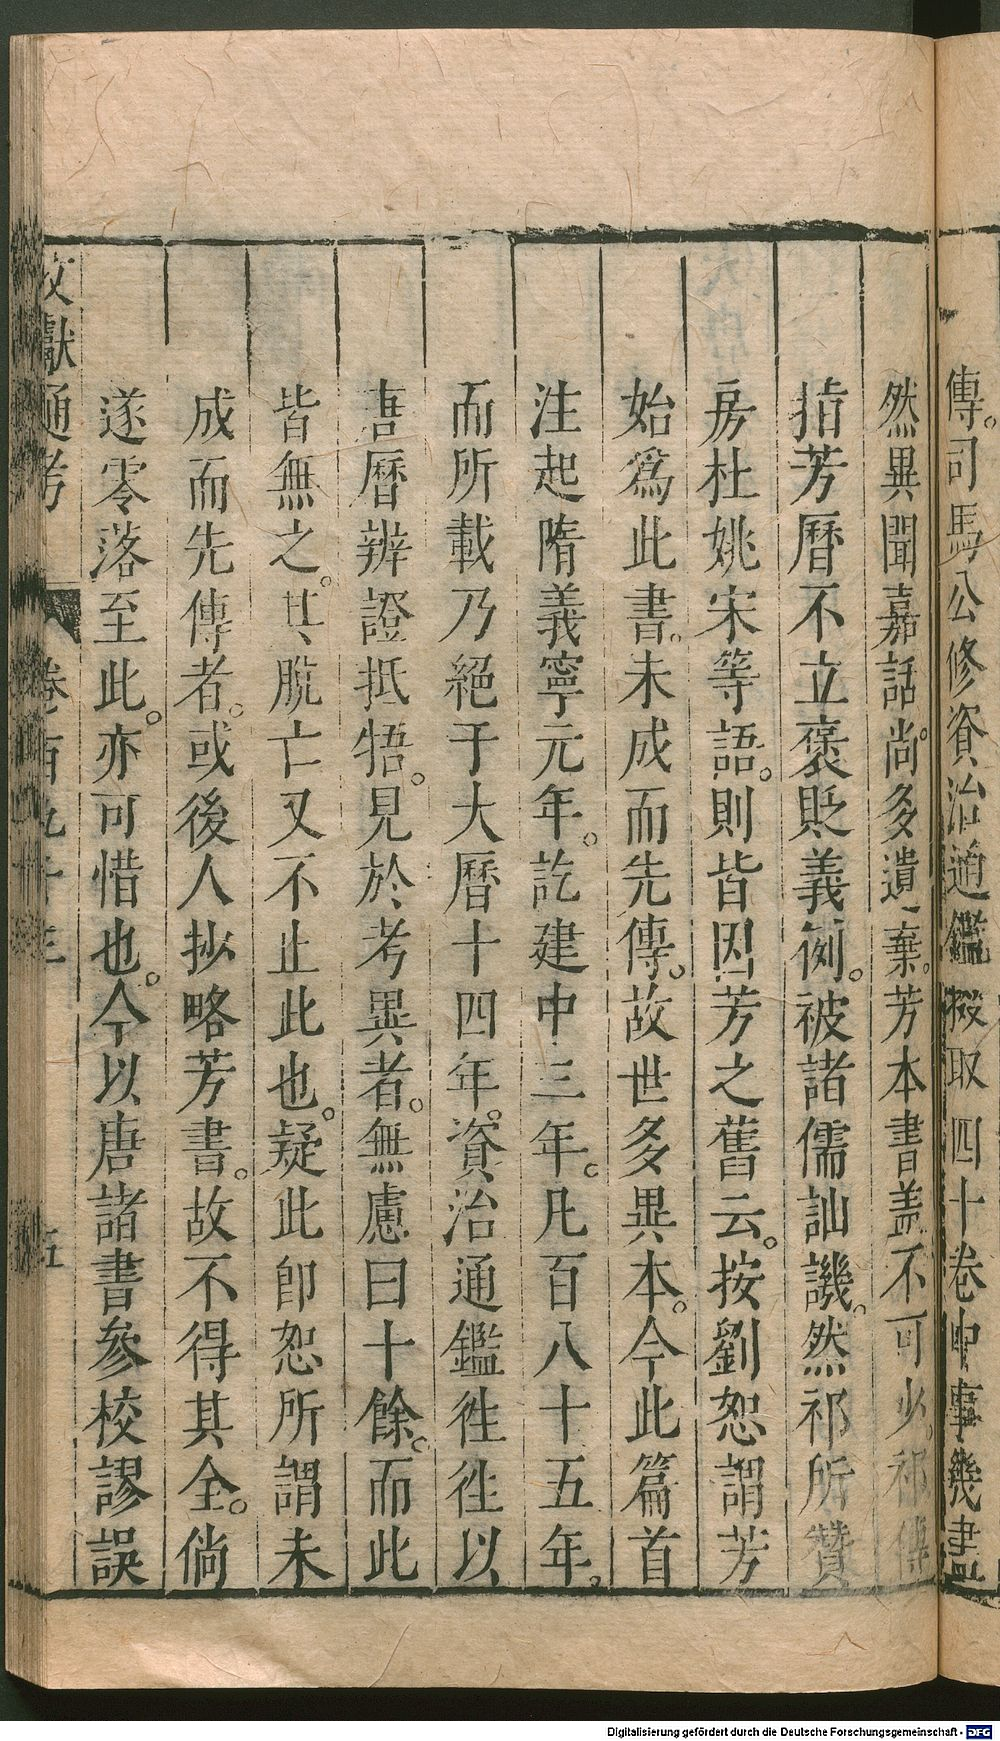 傳。司馬公修資治通鑑掇取四十卷中事幾盡
然異聞嘉話。尚多遺棄。芳本書蓋不可少。祁傳
指芳曆不立褒貶義例。被諸儒訕譏。然祁所贊
房杜姚宋等語。則皆因芳之舊云。按劉恕謂芳
始爲此書。未成而先傳。故世多異本。今此篇首
注起隋義寧元年。訖建中三年。凡百八十五年。
而所載乃絕于大曆十四年。資治通鑑徃徃以
唐曆辨證抵牾。見於考異者。無慮曰十餘。而此
皆無之。其脫亡又不止此也。疑此卽恕所謂未
成而先傳者。或後人抄略芳書。故不得其全。倘
遂零落至此。亦可惜也。今以唐諸書參校謬誤
文獻通考 卷百九十三 五
Digitalisierung gefördert durch die Deutsche Forschungsgemeinschaft - DFG